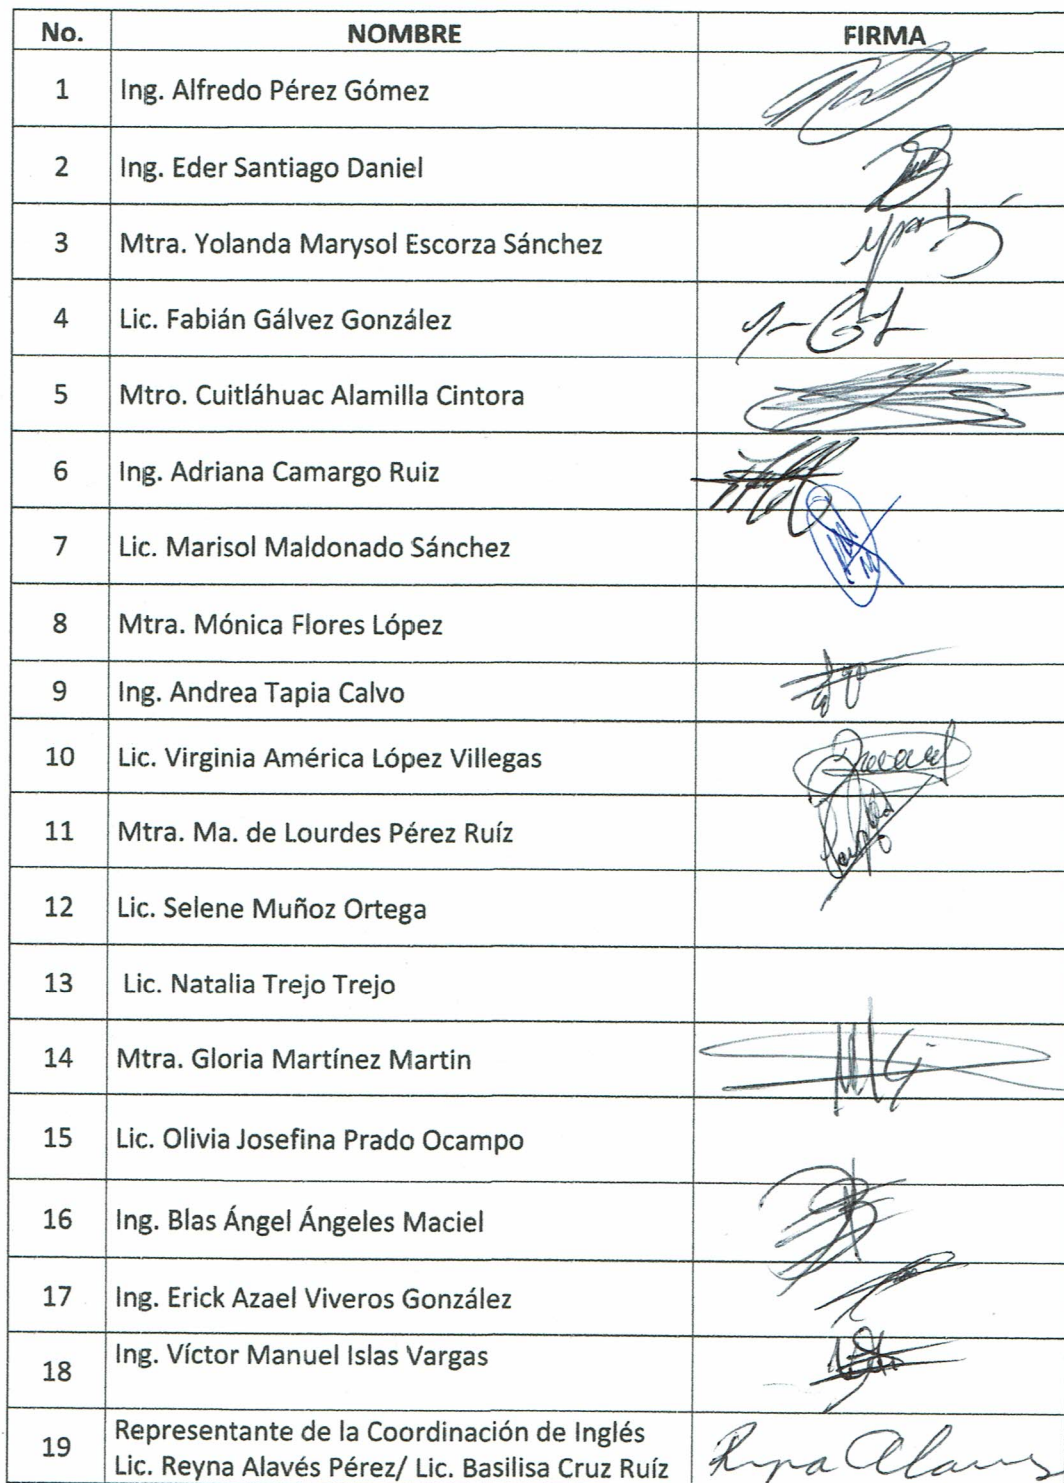 No. NOMBRE FIRMA
1 Ing. Alfredo Pérez Gómez
2 Ing. Eder Santiago Daniel
3 Mtra. Yolanda Marysol Escorza Sánchez
4 Lic. Fabián Gálvez González
5 Mtro. Cuitláhuac Alamilla Cintora
6 Ing. Adriana Camargo Ruiz
7 Lic. Marisol Maldonado Sánchez
8 Mtra. Mónica Flores López
9 Ing. Andrea Tapia Calvo
10 Lic. Virginia América López Villegas
11 Mtra. Ma. de Lourdes Pérez Ruíz
12 Lic. Selene Muñoz Ortega
13 Lic. Natalia Trejo Trejo
14 Mtra. Gloria Martínez Martin
15 Lic. Olivia Josefina Prado Ocampo
16 Ing. Blas Ángel Ángeles Maciel
17 Ing. Erick Azael Viveros González
18 Ing. Víctor Manuel Islas Vargas
19 Representante de la Coordinación de Inglés
Lic. Reyna Alavés Pérez/ Lic. Basilisa Cruz Ruíz